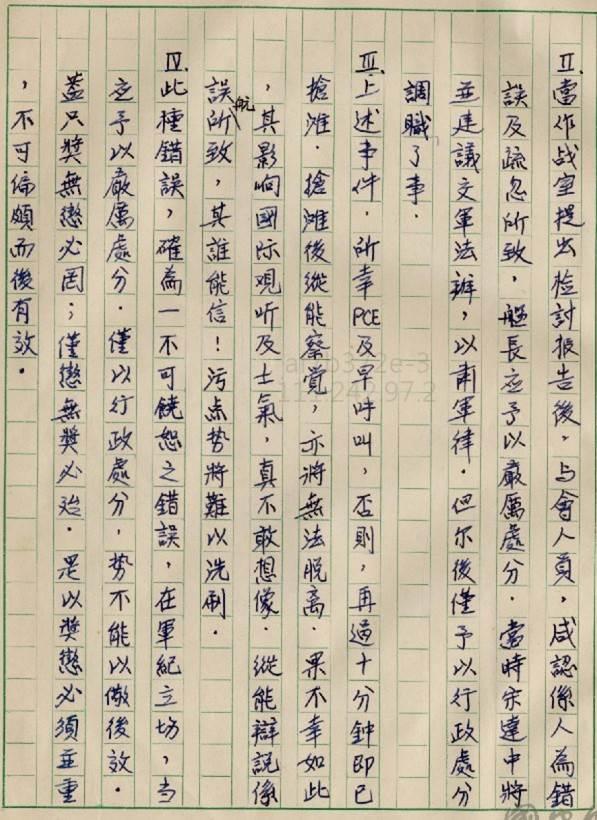 II.當作战室提出检討报告後，与會人員，咸認係人為錯
誤及疏忽所致，艇長应予以嚴厲處分．當時宋達中將
並建議交軍法辦，以肅軍律．但尔後僅予以行政處分
調職了事．
III.上述事件，所幸PCE及早呼叫，否則，再過十分鐘即已
搶滩．搶滩後縱能察覚，亦將無法脱离．果不幸如此
，其影响國际观听及士氣，真不敢想像．縱能辯説係
航
誤所致，其誰能信！污点势將難以洗刷．
IV.此種錯誤，確為一不可饒恕之錯誤，在軍紀立場，当
应予以嚴厲處分．僅以行政處分，势不能以儆後效．
蓋只奬無懲必罔；僅懲無奬必殆．是以奬懲必須並重
，不可偏頗而後有效．